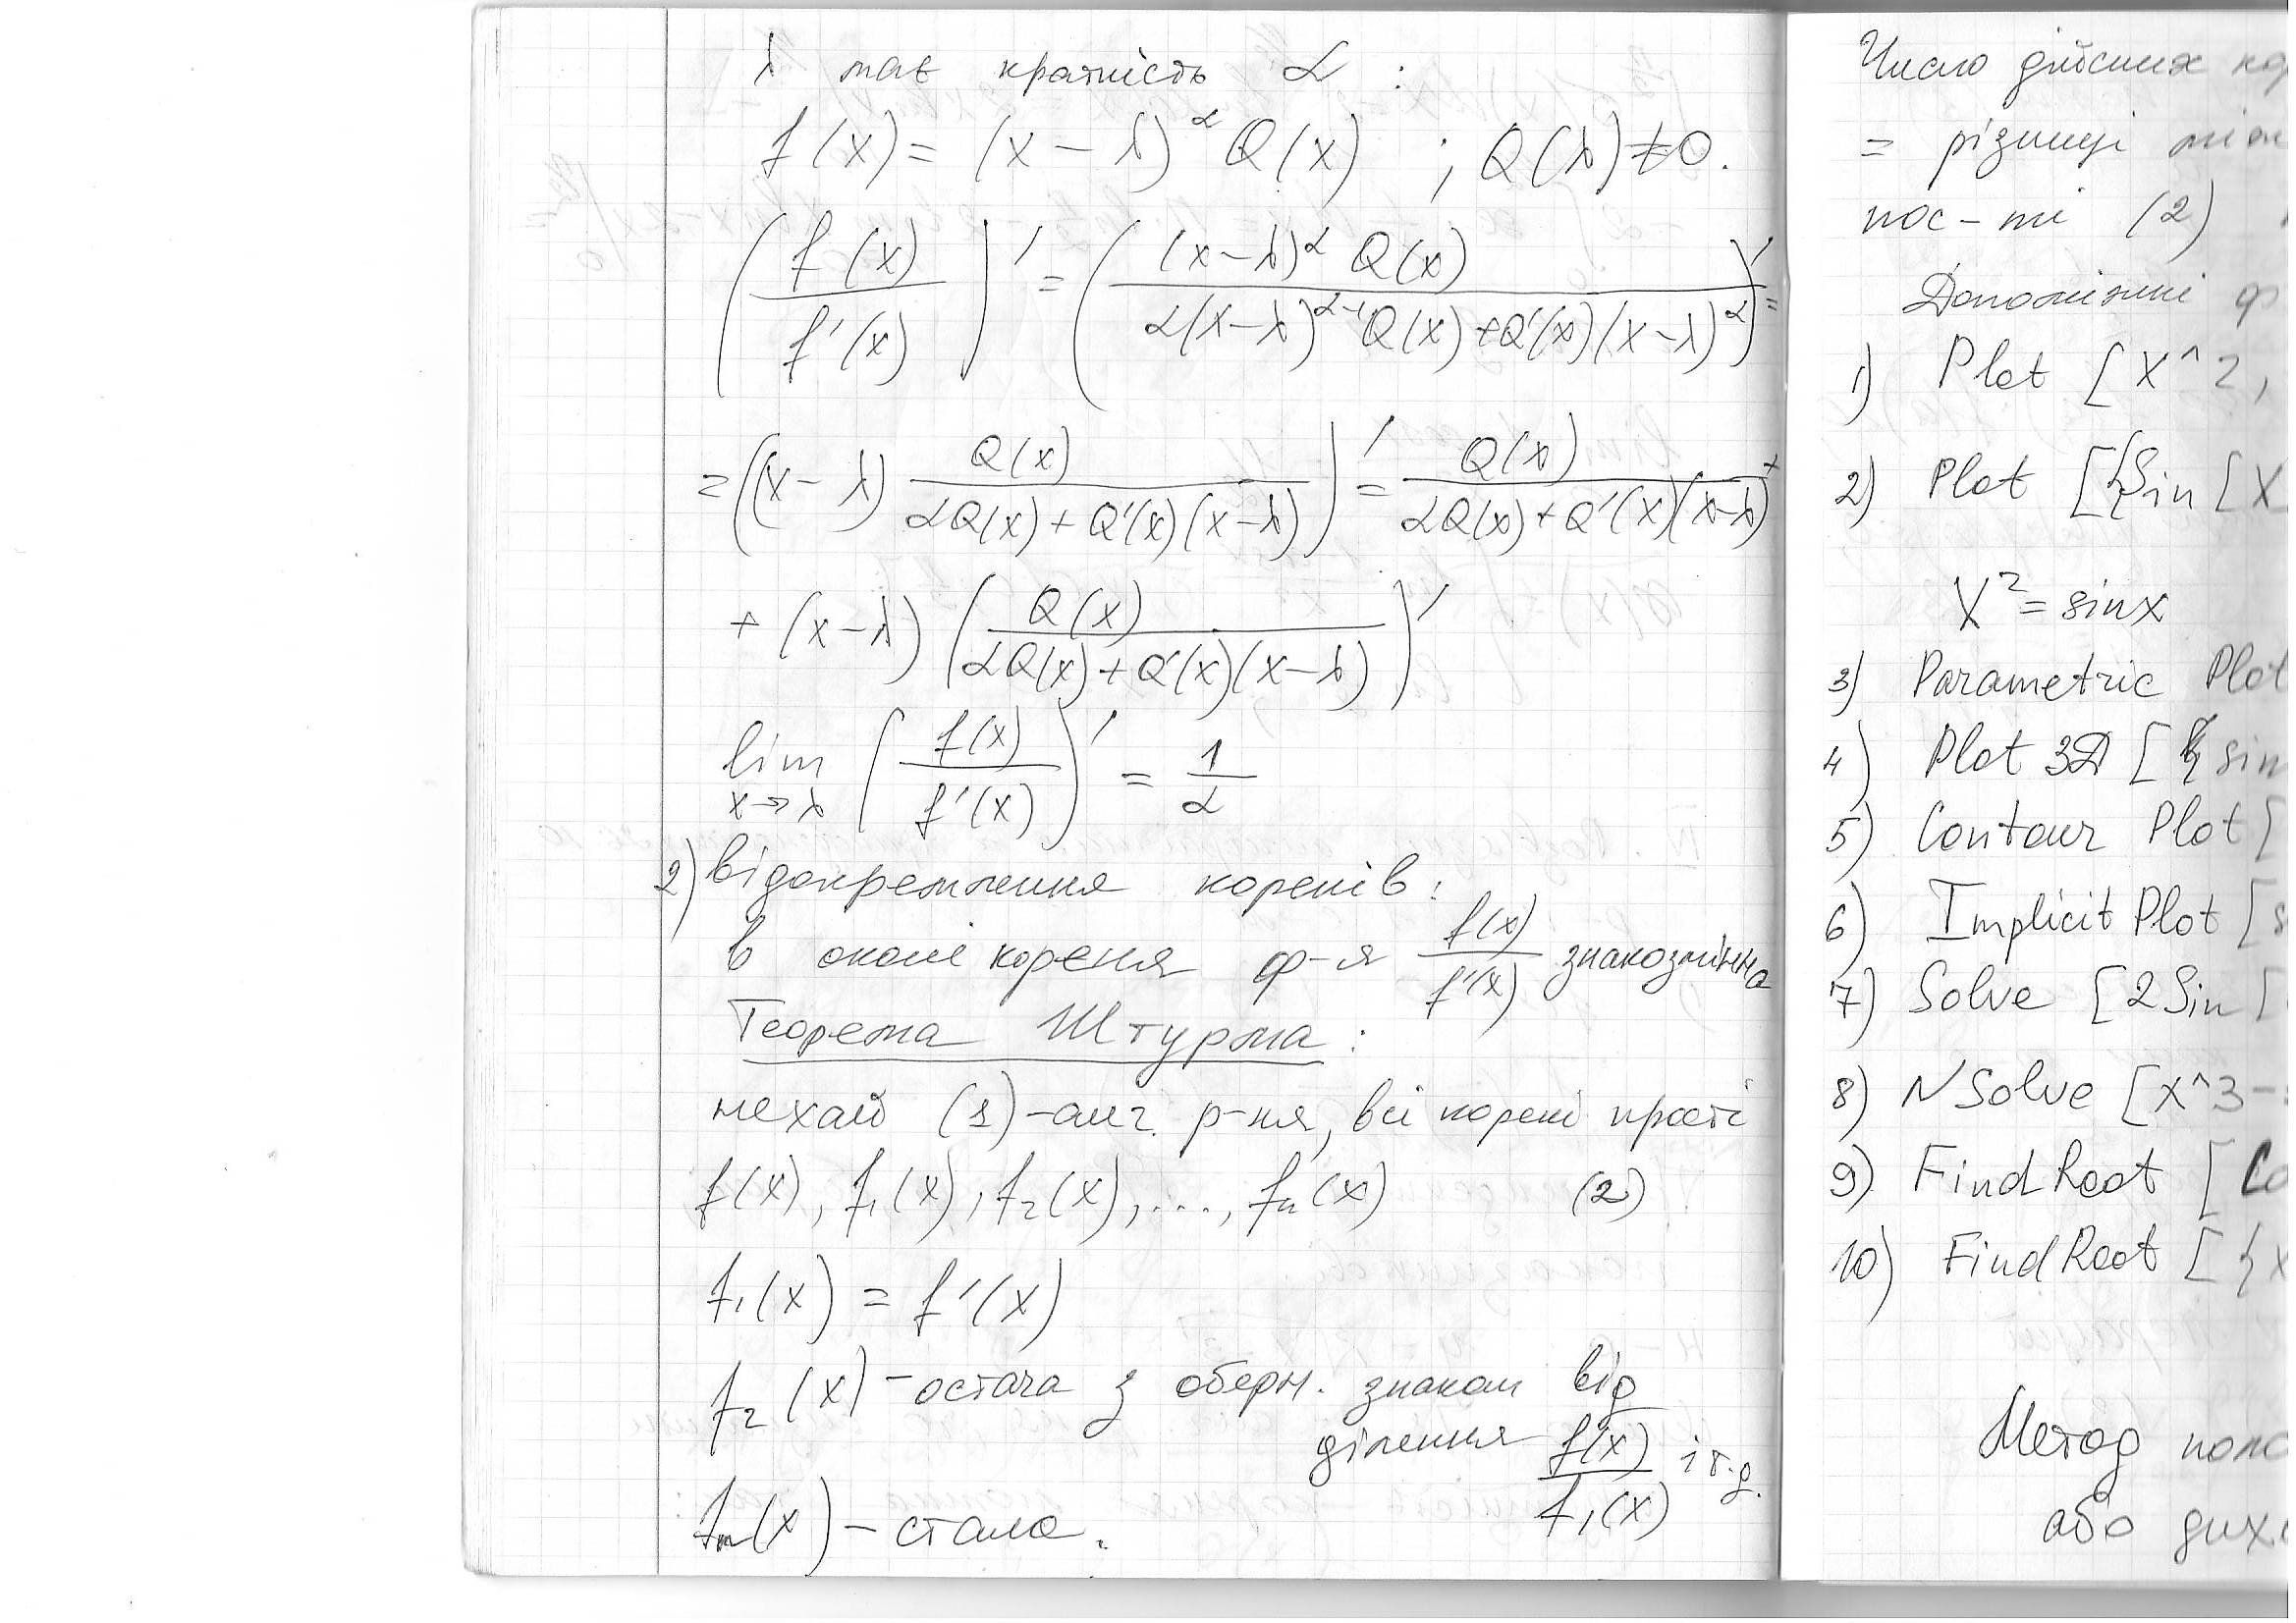 λ має кратність α :
f(x) = (x − λ)^α Q(x) ; Q(λ) ≠ 0.
(f(x)/f'(x))' = ((x−λ)^α Q(x) / (α(x−λ)^(α−1) Q(x) + Q'(x)(x−λ)^α))' =
= ((x − λ) Q(x)/(αQ(x) + Q'(x)(x−λ)))' = Q(x)/(αQ(x) + Q'(x)(x−λ)) +
+ (x−λ) (Q(x)/(αQ(x) + Q'(x)(x−λ)))'
lim x→λ (f(x)/f'(x))' = 1/α
2) відокремлення коренів :
в околі кореня ф-я f(x)/f'(x) знакозмінна
Теорема Штурма :
нехай (1)-алг. р-ня, всі корені прості
f(x), f₁(x), f₂(x), ..., fₙ(x) (2)
f₁(x) = f'(x)
f₂(x) – остача з оберн. знаком від
ділення f(x)/f₁(x) і т.д.
fₙ(x) – стала.
Число дійсних
= різниці
пос-ті (2)
Допоміжні
1) Plot [X^2,
2) Plot [{Sin [X
X² = sinx
3) Parametric Plot
4) Plot 3D [{sin
5) Contour Plot [
6) Implicit Plot [
7) Solve [2Sin [
8) NSolve [x^3-
9) FindRoot [Co
10) FindRoot [{x
Метод
або